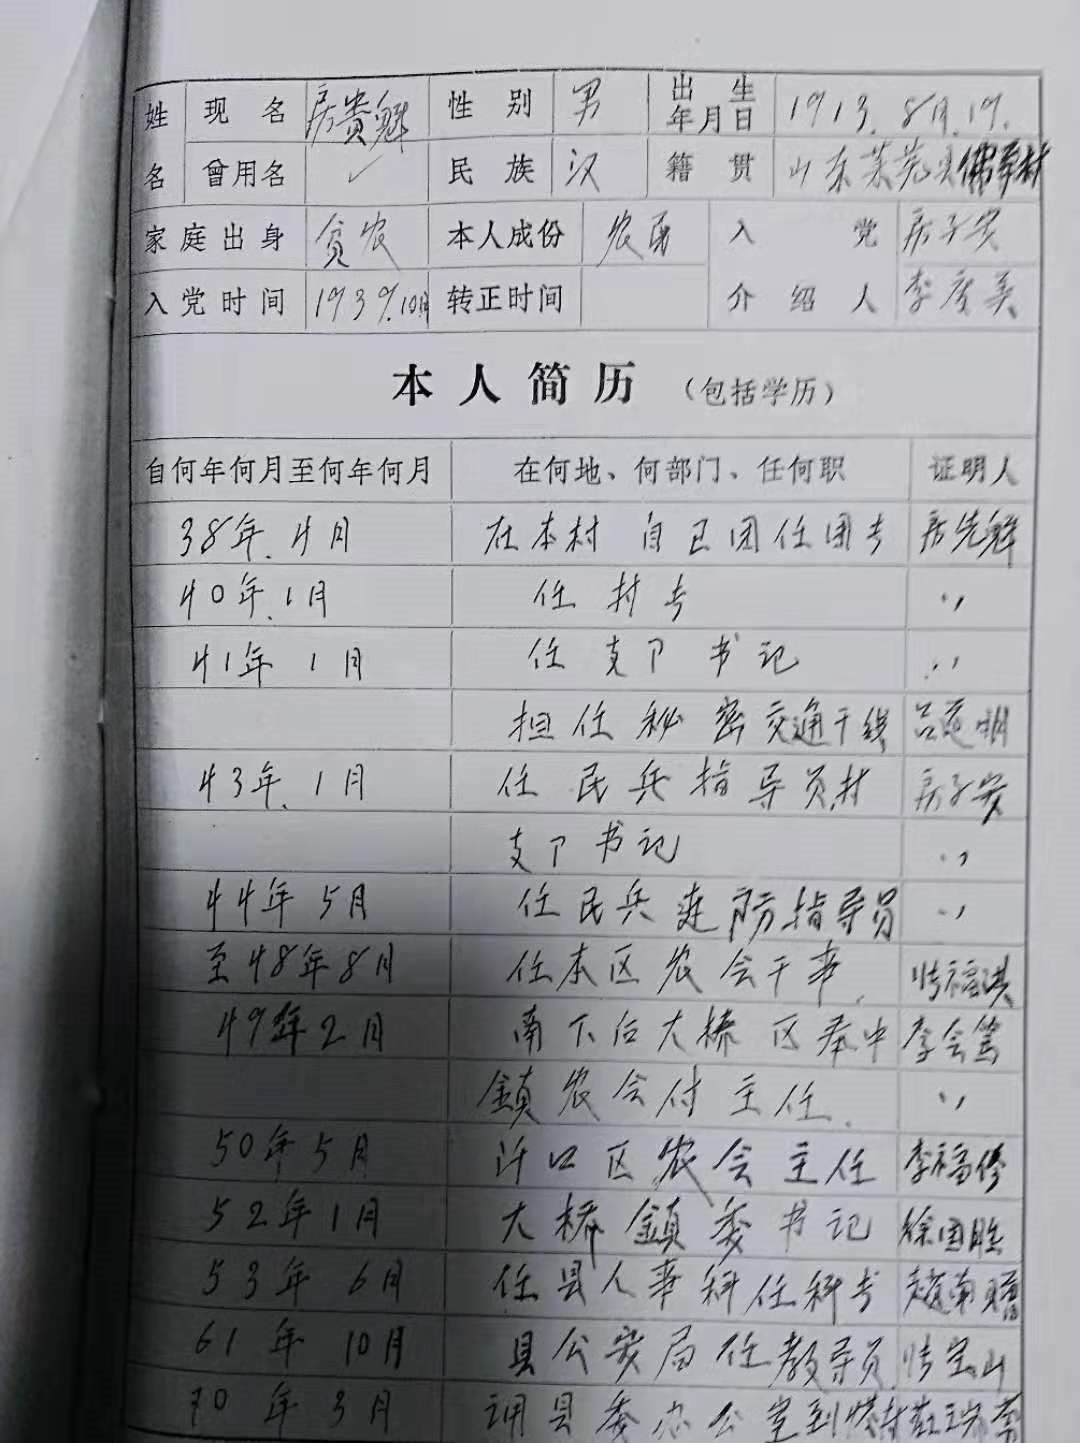 姓名 现名 房贵魁 性别 男 出生年月日 1913.8月.19.
曾用名 ✓ 民族 汉 籍贯 山东莱芜县
家庭出身 贫农 本人成份 农民 入党介绍人 房子安
入党时间 1939.10月 转正时间 李庆美
本人简历(包括学历)
自何年何月至何年何月 在何地、何部门、任何职 证明人
38年.4月 在本村自卫团任团长 房先魁
40年.1月 任村长 〃
41年1月 任支卩书记 〃
担任秘密交通干线 吕莲明
43年.1月 任民兵指导员.村 房子安
支卩书记 〃
44年5月 任民兵连防指导员 〃
至48年8月 任本区农会干事. 张福洪
49年2月 南下后大桥区奉中 李会笃
鎮农会付主任. 〃
50年5月 许口区农会主任 李福修
52年1月 大桥鎮委书记 徐国胜
53年6月 任县人事科任科长 赵南
61年10月 县公安局任教导员 张宝山
70年3月 调县委办公室到